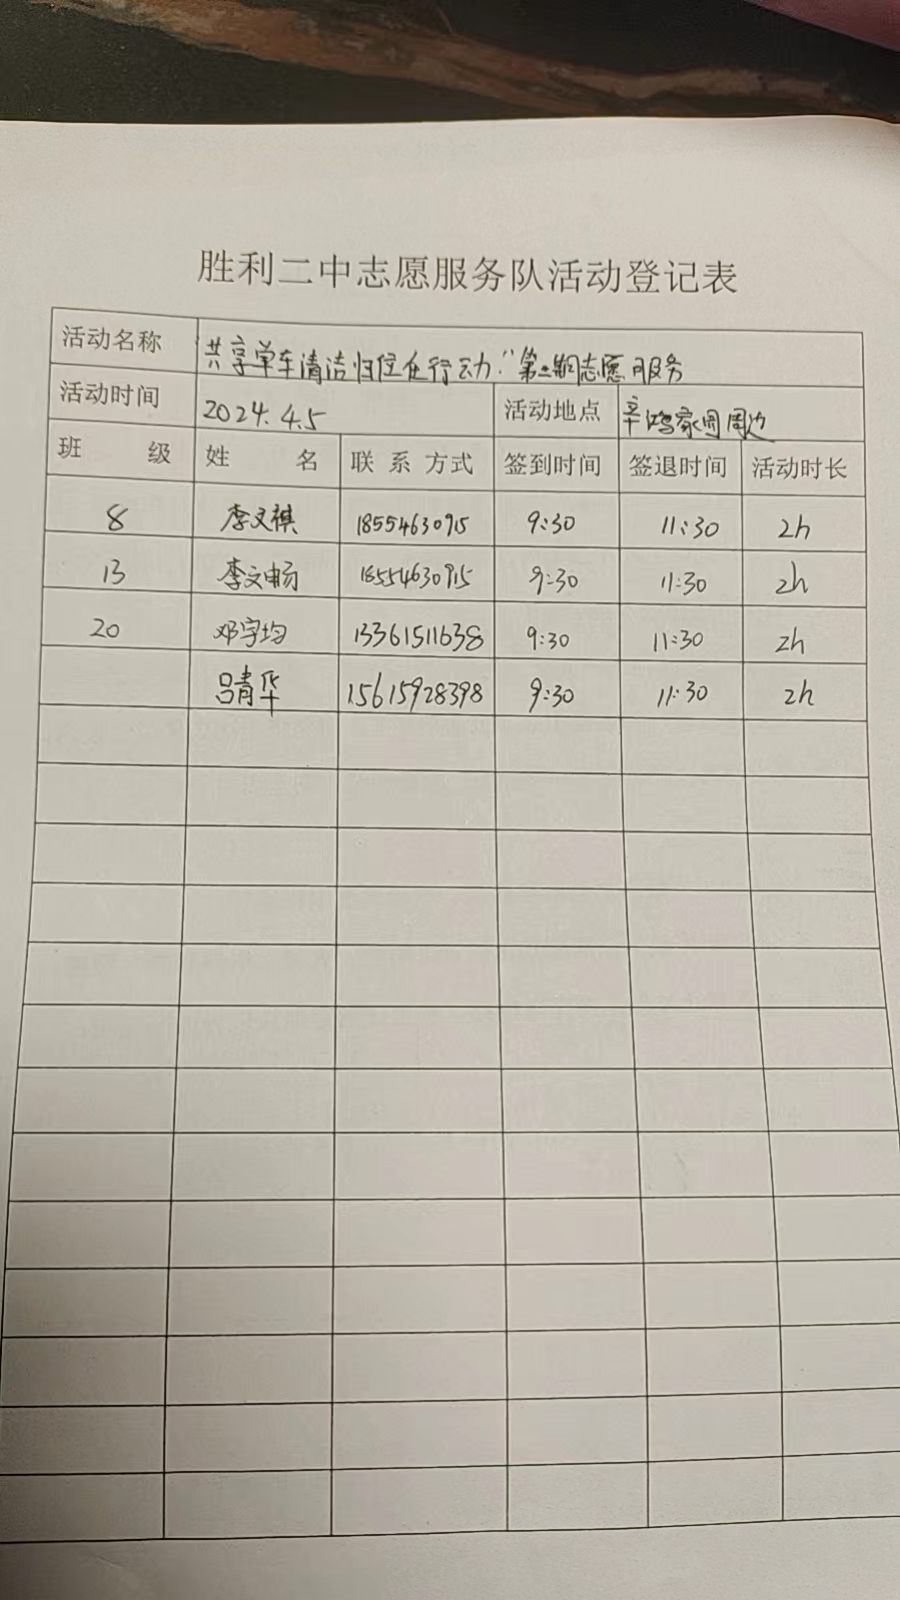 胜利二中志愿服务队活动登记表
活动名称 共享单车清洁归位在行动"第二期志愿服务
活动时间 2024.4.5 活动地点 辛鸿家园周边
班 级 姓 名 联系方式 签到时间 签退时间 活动时长
8 李文祺 18554630915 9:30 11:30 2h
13 李文畅 18554630915 9:30 11:30 2h
20 邓宇均 13361511638 9:30 11:30 2h
吕青华 15615928398 9:30 11:30 2h